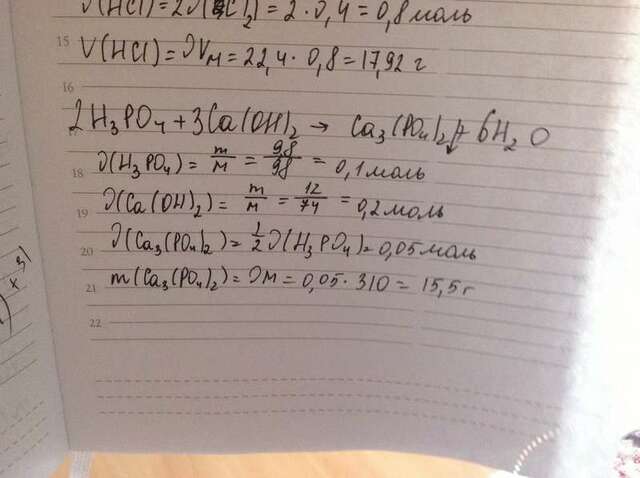 ϑ(HCl) = 2ϑ(CCl₂) = 2 · 0,4 = 0,8 моль
15 V(HCl) = ϑVм = 22,4 · 0,8 = 17,92 г
16
2H₃PO₄ + 3Ca(OH)₂ → Ca₃(PO₄)₂↓ + 6H₂O
18 ϑ(H₃PO₄) = m/м = 9,8/98 = 0,1 моль
19 ϑ(Ca(OH)₂) = m/м = 12/74 = 0,2 моль
20 ϑ(Ca₃(PO₄)₂) = 1/2 ϑ(H₃PO₄) = 0,05 моль
21 m(Ca₃(PO₄)₂) = ϑм = 0,05 · 310 = 15,5 г
22